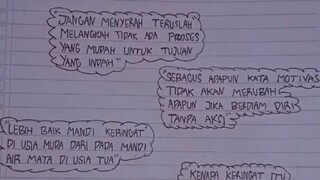 "JANGAN MENYERAH TERUSLAH
MELANGKAH TIDAK ADA PROSES
YANG MUDAH UNTUK TUJUAN
YANG INDAH"
"SEBAGUS APAPUN KATA MOTIVAS
TIDAK AKAN MERUBAH
APAPUN JIKA BERDIAM DIRI
TANPA AKSI
"LEBIH BAIK MANDI KERINGAT
DI USIA MUDA DARI PADA MANDI
AIR MATA DI USIA TUA"
KENAPA KERINGAT ITU